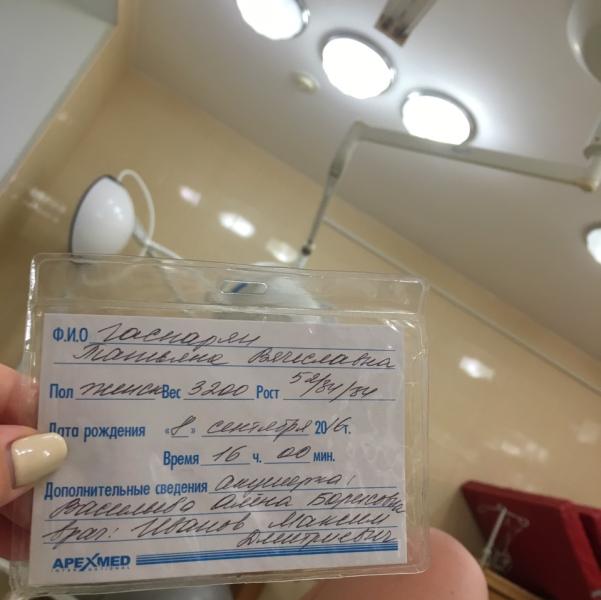 Ф.И.О Гаспарян
Татьяна Вячеславна
Пол женск Вес 3200 Рост 52/34/34
Дата рождения «8» сентября 2016г.
Время 16 ч. 00 мин.
Дополнительные сведения акушерка:
Васильева Алёна Борисовна
врач: Иванов Максим
Дмитриевич
APEXMED
INTERNATIONAL